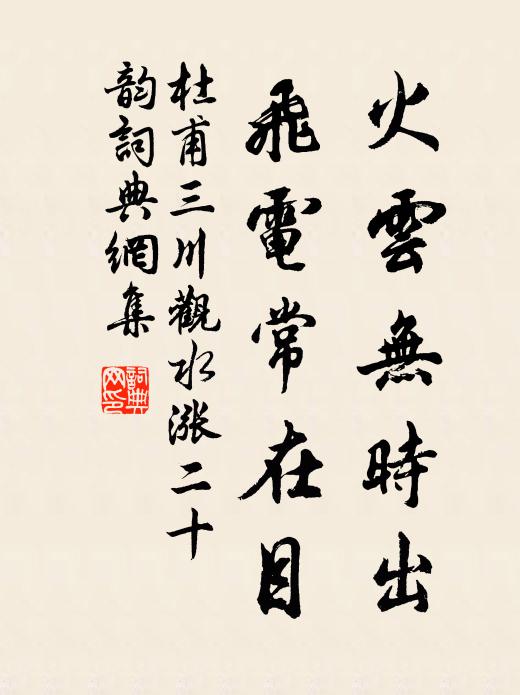 火雲無時出
飛電常在目
杜甫三川觀水漲二十
韵詞典網集
詞典
网印